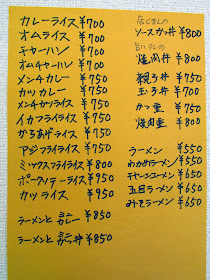 カレーライス ¥700
オムライス ¥700
チャーハン ¥700
オムチャーハン ¥700
メンチカレー ¥750
カツカレー ¥750
メンチカツライス ¥750
イカフライライス ¥750
からあげライス ¥750
アジフライライス ¥750
ミックスフライライス ¥800
ポークソテーライス ¥950
カツライス ¥950
ラーメンと ミニカレー ¥850
ラーメンと ミニ丼 ¥850
店じまんの
ソースカツ丼 ¥800
焼肉丼 ¥800
親子丼 ¥750
玉子丼 ¥700
かつ重 ¥750
焼肉重 ¥800
ラーメン ¥550
わかめラーメン ¥550
チャーシューメン ¥650
五目ラーメン ¥650
みそラーメン ¥650